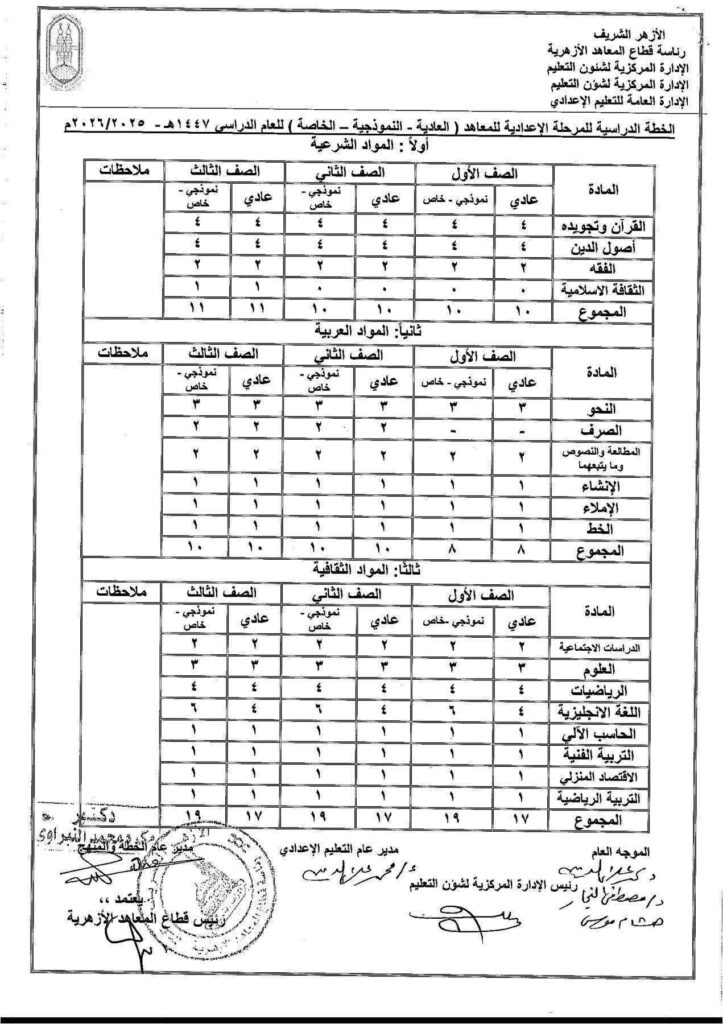 الأزهر الشريف
رئاسة قطاع المعاهد الأزهرية
الإدارة المركزية لشئون التعليم
الإدارة المركزية لشؤن التعليم
الإدارة العامة للتعليم الإعدادي
الخطة الدراسية للمرحلة الإعدادية للمعاهد ( العادية - النموذجية – الخاصة ) للعام الدراسي ١٤٤٧هـ - ٢٠٢٦/٢٠٢٥م
أولاً : المواد الشرعية
المادة الصف الأول الصف الثاني الصف الثالث ملاحظات
عادي نموذجي - خاص عادي نموذجي - خاص عادي نموذجي - خاص
القرآن وتجويده ٤ ٤ ٤ ٤ ٤ ٤
أصول الدين ٤ ٤ ٤ ٤ ٤ ٤
الفقه ٢ ٢ ٢ ٢ ٢ ٢
الثقافة الاسلامية ٠ ٠ ٠ ٠ ١ ١
المجموع ١٠ ١٠ ١٠ ١٠ ١١ ١١
ثانياً: المواد العربية
المادة الصف الأول الصف الثاني الصف الثالث ملاحظات
عادي نموذجي - خاص عادي نموذجي - خاص عادي نموذجي - خاص
النحو ٣ ٣ ٣ ٣ ٣ ٣
الصرف - - ٢ ٢ ٢ ٢
المطالعة والنصوص وما يتبعهما ٢ ٢ ٢ ٢ ٢ ٢
الإنشاء ١ ١ ١ ١ ١ ١
الإملاء ١ ١ ١ ١ ١ ١
الخط ١ ١ ١ ١ ١ ١
المجموع ٨ ٨ ١٠ ١٠ ١٠ ١٠
ثالثا: المواد الثقافية
المادة الصف الأول الصف الثاني الصف الثالث ملاحظات
عادي نموذجي -خاص عادي نموذجي - خاص عادي نموذجي - خاص
الدراسات الاجتماعية ٢ ٢ ٢ ٢ ٢ ٢
العلوم ٣ ٣ ٣ ٣ ٣ ٣
الرياضيات ٤ ٤ ٤ ٤ ٤ ٤
اللغة الانجليزية ٤ ٦ ٤ ٦ ٤ ٦
الحاسب الآلي ١ ١ ١ ١ ١ ١
التربية الفنية ١ ١ ١ ١ ١ ١
الاقتصاد المنزلي ١ ١ ١ ١ ١ ١
التربية الرياضية ١ ١ ١ ١ ١ ١
المجموع ١٧ ١٩ ١٧ ١٩ ١٧ ١٩
دكتور
محمد النبراوي
الموجه العام مدير عام التعليم الإعدادي مدير عام الخطة والمنهج
رئيس الإدارة المركزية لشؤن التعليم
د/ مصطفى النجار
هشام موسى
يعتمد ،،
رئيس قطاع المعاهد الأزهرية